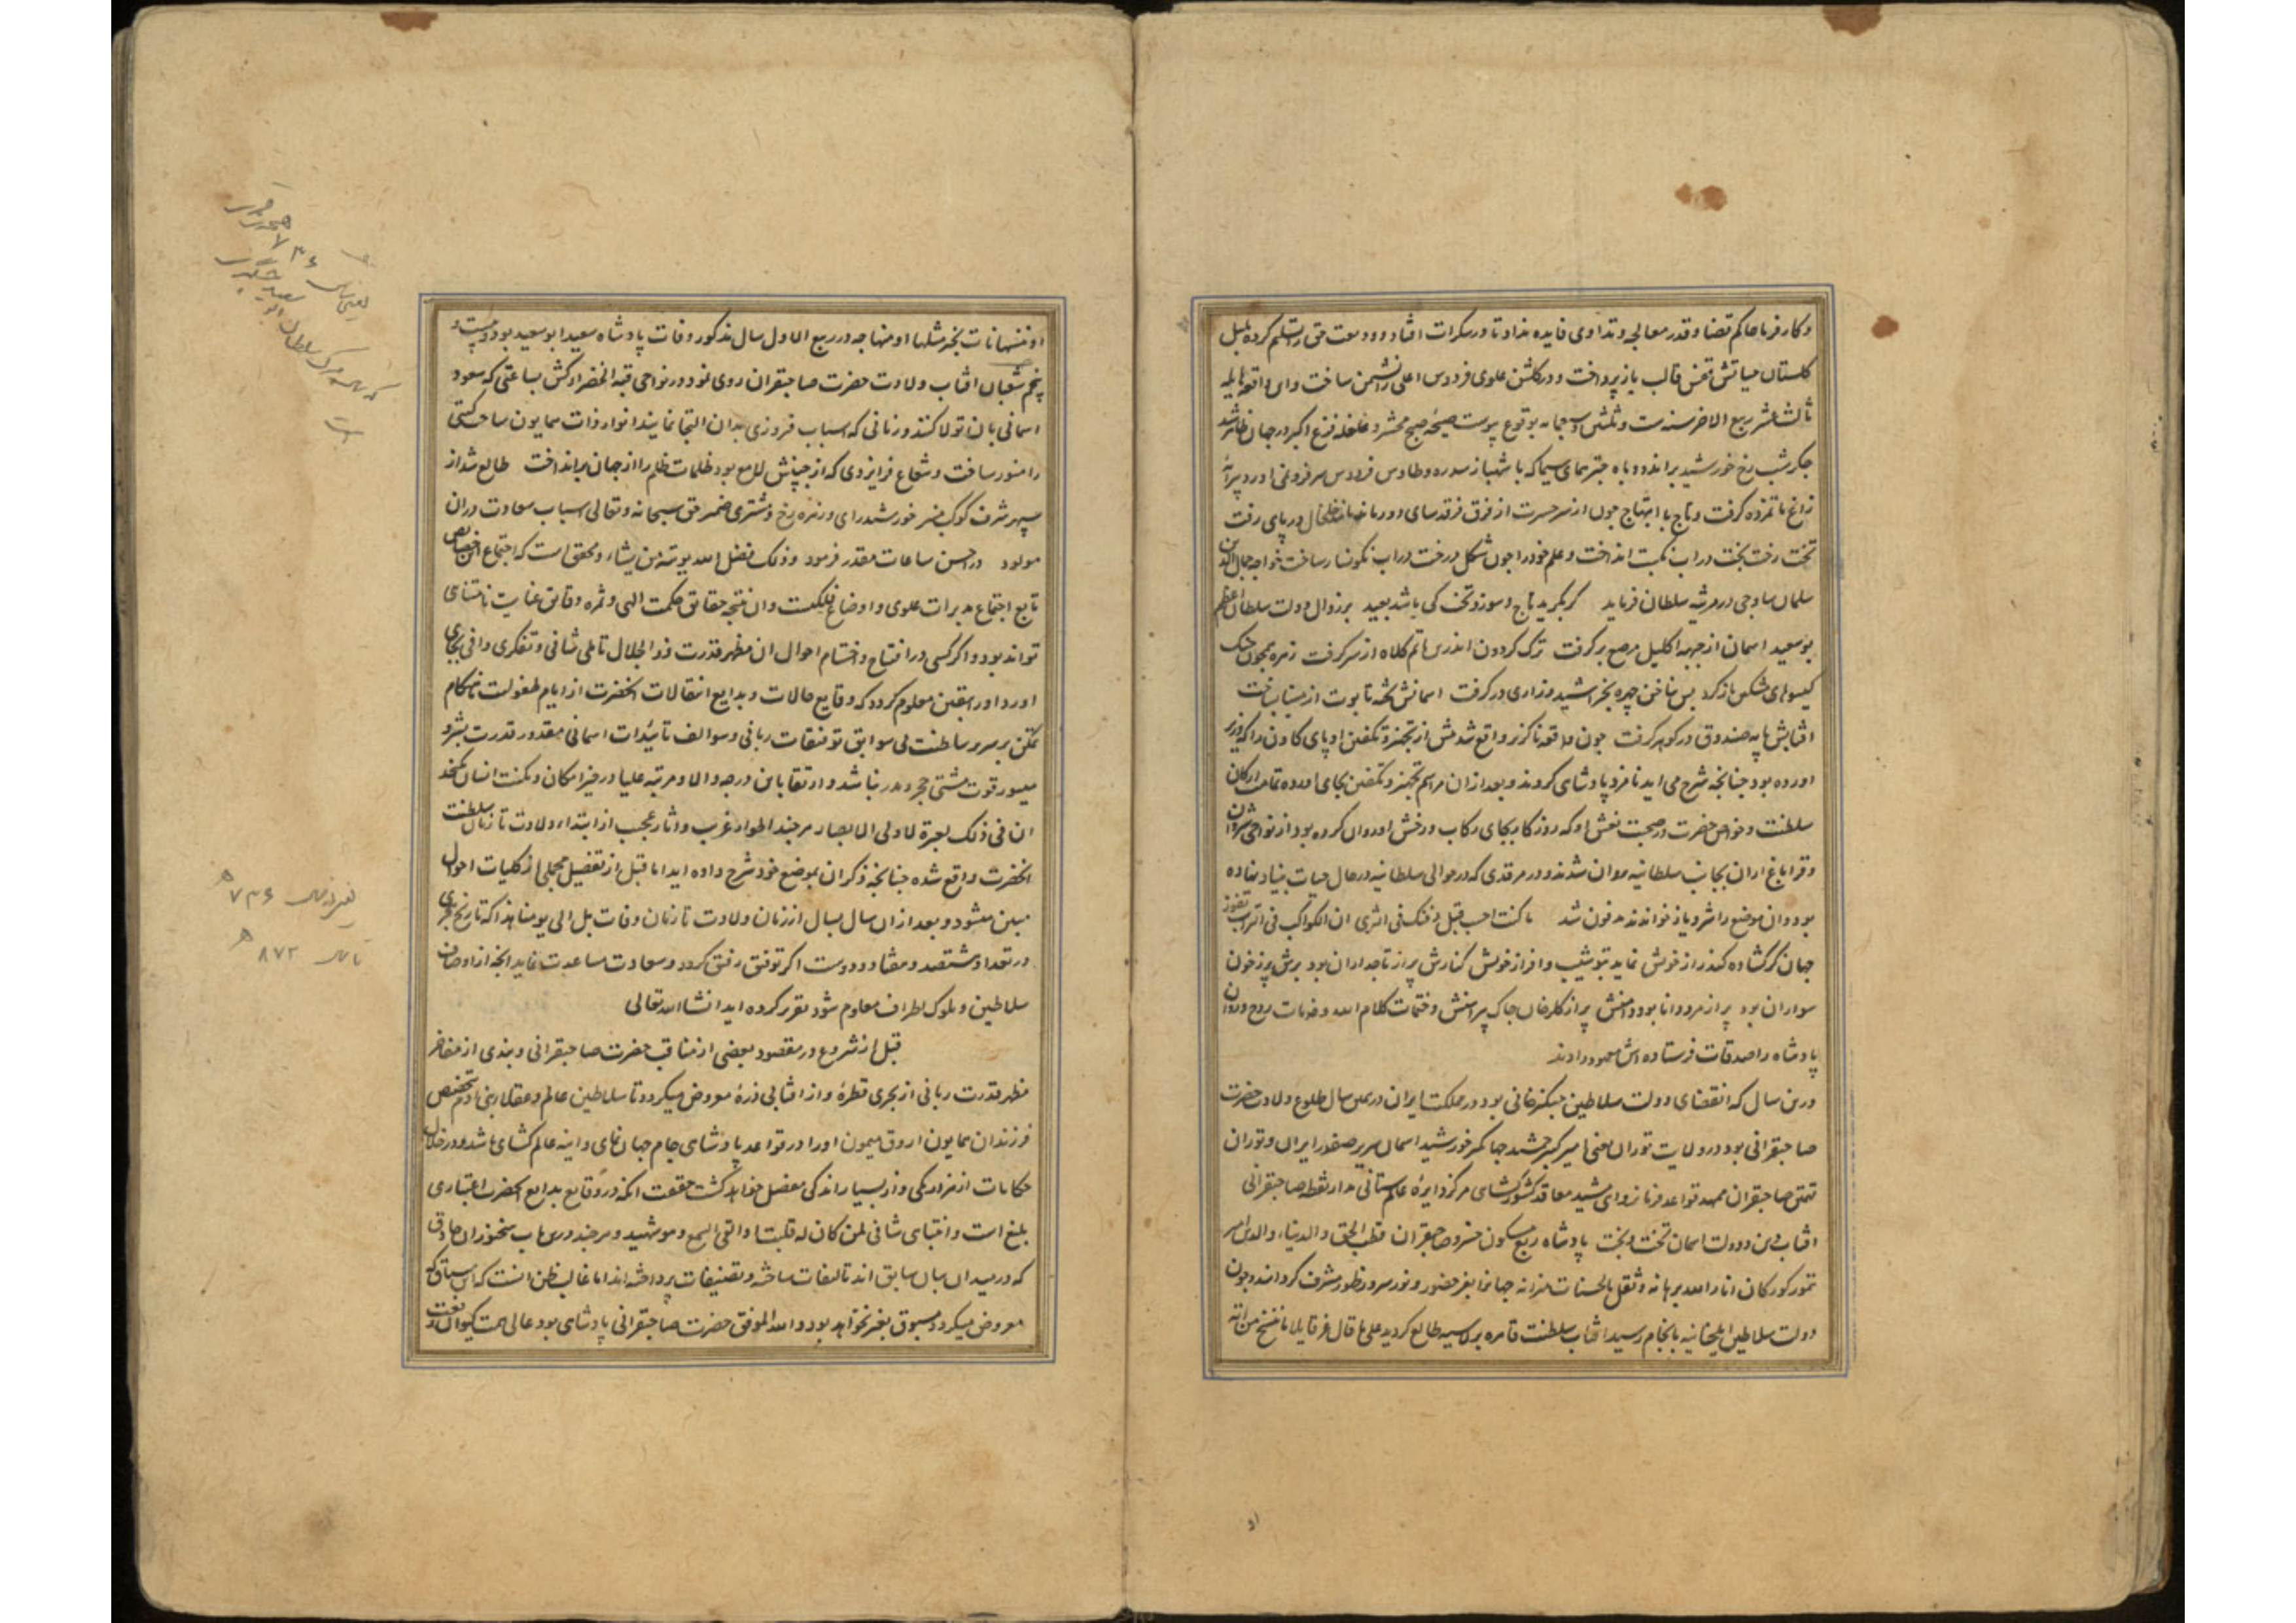 و کار فرما حاکم قضا و قدر معالجه و تداوی فایده نداد تا در سکرات افتاد و ودیعت حق را تسلیم کرده بلبل
کلستان حیاتش قفس قالب باز پرداخت و در کلشن علوی فردوس اعلی را نشیمن ساخت و این واقعه هایله
ثالث عشر ربیع الاخر سنه ست و ثلثین و سبعمایه بوقوع پیوست صیحه صبح محشر و غلغله فزع اکبر در جهان ظاهر شد
جکر شب رخ خورشید براندود و باه جتر همای سیما که با شهباز سدره و طاوس فردوس سر فرو نمی اورد
زاغ ماتم زده کرفت و تاج با ابتهاج جون از سر حسرت از فرق فرقدسای دور ماند مانند خلخال در پای رفت
تخت رخت بخت در اب نکبت انداخت و علم خود را جون شکل درخت در اب نکونسار ساخت خواجه جمال الدین
سلمان ساوجی در مرثیه سلطان فرماید کر بکرید تاج و سوزد تخت کی باشد بعید بر زوال دولت سلطان اعظم
بوسعید اسمان از جبهه اکلیل مرصع بر کرفت ترک کردون اندرین ماتم کلاه از سر کرفت زهره همجون جنک
کیسوهای مشکین باز کرد بس بناخن چهره بخراشید و زاری در کرفت اسمانش تخته تابوت از مینا بساخت
افتابش مایه صندوق در کوهر کرفت جون واقعه ناکزیر واقع شد پیش از تجهیز و تکفین ارپای کاون را که وزیر
اورده بود جنانجه شرح می اید نامزد پادشاهی کردند و بعد از ان مراسم تجهیز و تکفین بجای اورده تمامت ارکان
سلطنت و خواص حضرت در صحبت نعش او که روز کار بجای رکاب و رخش اوروان کرده بود از نواحی شروان
و قراباغ اران بجانب سلطانیه روان شدند و در مرقدی که در حوالی سلطانیه در حال حیات بنیاد نهاده
بود و ان موضع را شرویاز خوانند مدفون شد ما کنت احسب قبل دفنک فی الثری ان الکواکب فی التراب تغور
جهان کر کشاده کند راز خویش نماید بتو شیب و افراز خویش کنارش پر از تاجداران بود برش پر ز خون
سواران بود پر از مرد دانا بود دامنش پر از کلرخان جاک پیراهنش و ختمات کلام الله و فدیات روح و روان
پادشاه را صدقات فرستاده اش معمور دادند
درین سال که انقضای دولت سلاطین جنکیزخانی بود در مملکت ایران در همان سال طلوع ولادت حضرت
صاحبقرانی بود در ولایت توران یعنی امیر کبیر جمشید جهانکیر خورشید اسمان سریر صفدر ایران و توران
تهمتن صاحبقران ممهد قواعد فرمانروای مشید معاقد کشورکشای مرکز دایره عالم ستانی مدار نقطه صاحبقرانی
افتاب دین و دولت اسمان تخت و بخت پادشاه ربع مسکون خسرو صاحبقران قطب الحق و الدنیا و الدین امیر
تیمور کورکان انار الله برهانه و ثقل بالحسنات میزانه جهانرا بفر حضور و نور سرور ظهور مشرف کردانید و جون
دولت سلاطین ایلخانیه بانجام رسید افتاب سلطنت قاهره برلاسیه طالع کردید علی ما قال عز قایلا ما ننسخ من ایة
او ننسها نات بخیر منها او مثلها جه در ربیع الاول سال مذکور وفات پادشاه سعید ابو سعید بود و بیست و
پنجم شعبان افتاب ولادت حضرت صاحبقران روی نمود در نواحی قبة الخضراء کش بساعتی که سعود
اسمانی بان تولا کنند و زمانی که اسباب فیروزی بدان التجا نمایند انوار ذات همایون ساحت کیتی
را منور ساخت و شعاع فر ایزدی که از جبینش لامع بود ظلمات ظلم را از جهان برانداخت طالع شد از
سپهر شرف کوکب منیر خورشید رای و زهره رخ و مشتری ضمیر حق سبحانه و تعالی اسباب سعادت دران
مولود در احسن ساعات مقدر فرمود و ذلک فضل الله یوتیه من یشاء و محقق است که اجتماع این خصایص
تابع اجتماع مدبرات علوی و اوضاع فلکیست و ان نتیجه حقایق حکمت الهی و ثمره دقایق عنایت نامتناهی
تواند بود و اکر کسی در افتتاح و اختتام احوال ان مظهر قدرت ذو الجلال تاملی شافی و تفکری وافی بجای
اورد اورا بیقین معلوم کردد که وقایع حالات و بدایع انتقالات انحضرت از ایام طفولیت تا هنکام
تمکن بر سریر سلطنت بی سوابق توفیقات ربانی و سوالف تائیدات اسمانی مقدور قدرت بشر و
میسور قوت مشتی حجر و مدر نباشد و ارتقا باین درجه والا و مرتبه علیا در حیز امکان و مکنت انسان نکنجد
ان فی ذلک لعبرة لاولی الابصار هر جند اطوار غریب و اثار عجیب از ابتداء ولادت تا زمان سلطنت
انحضرت واقع شده جنانجه ذکر ان بموضع خود شرح داده اید اما قبل از تفصیل مجملی از کلیات احوال
مبین میشود و بعد از ان سال بسال از زمان ولادت تا زمان وفات بل الی یومنا هذا که تاریخ هجری
در تعداد هشتصد و هفتاد و دوست اکر توفیق رفیق کردد و سعادت مساعدت نماید انجه از اوضاع
سلاطین و ملوک اطراف معلوم شود تقریر کرده اید انشا الله تعالی
قبل از شروع در مقصود بعضی از مناقب حضرت صاحبقرانی و بندی از مفاخر
مظهر قدرت ربانی از بحری قطرهٔ و از افتابی ذرهٔ معروض میکردد تا سلاطین عالم و عقلاء بنی ادم بتخصیص
فرزندان همایون اروق میمون اورا در قواعد پادشاهی جام جهان نمای و اینه عالم کشای باشد و در خلال
حکایات از هزار یکی و از بسیار اندکی مفصل خواهد کشت حقیقت انکه در وقایع بدایع انحضرت اعتباری
بلیغ است و انتباهی شافی لمن کان له قلب او القی السمع و هو شهید و هر جند درین باب سخنوران حاذق
که در میدان بیان سابق اند تالیفات ساخته و تصنیفات پرداخته اند اما غالب ظن انست که این سیاق که
معروض میکردد مسبوق بغیر نخواهد بود و الله الموفق حضرت صاحبقرانی پادشاهی بود عالی همت کیوان رفعت
یعنی سال ۷۳۶ هجری
که سال مرک سلطان ابو سعید
است
یعنی از سال ۷۳۶ ه
تا سال ۸۷۲ ه